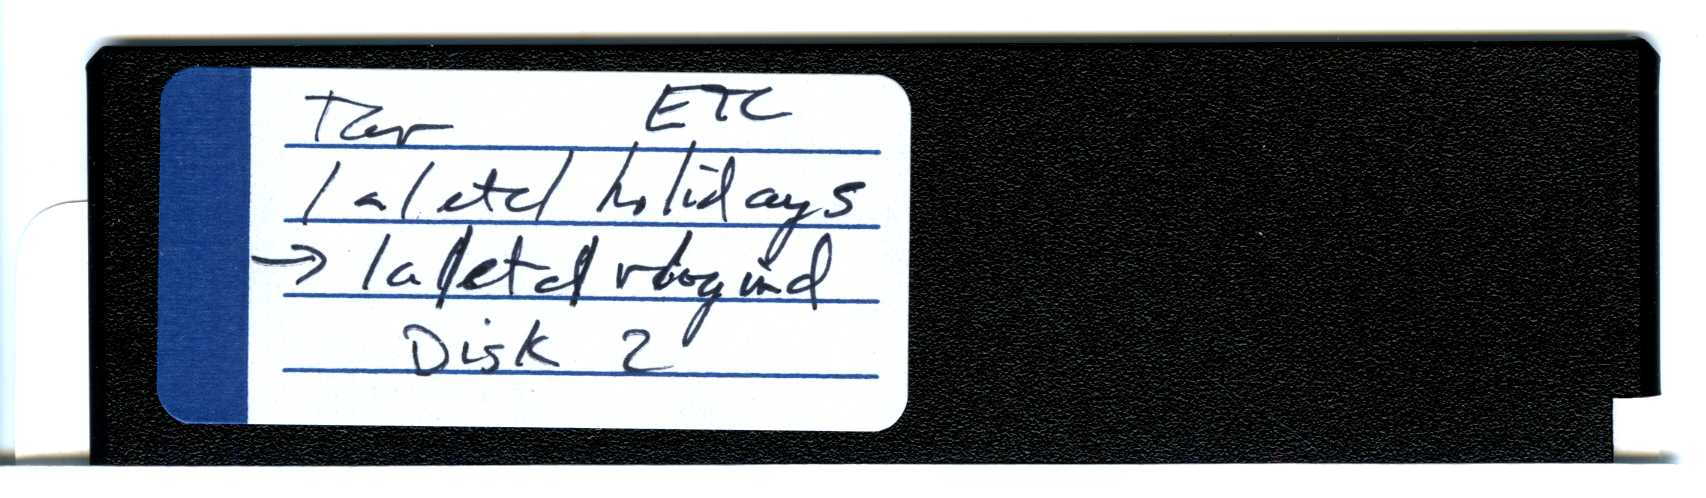 Tar ETC
/a/etc/holidays
→ /a/etc/rlogind
Disk 2